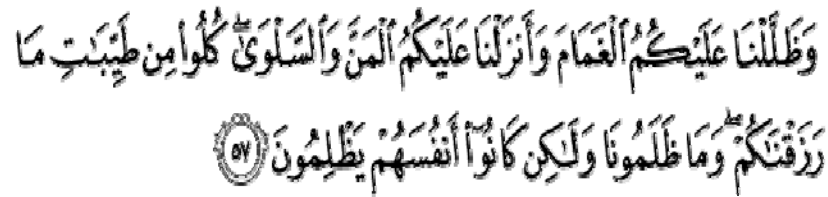 وَظَلَّلْنَا عَلَيْكُمُ ٱلْغَمَامَ وَأَنزَلْنَا عَلَيْكُمُ ٱلْمَنَّ وَٱلسَّلْوَىٰۖ كُلُوا۟ مِن طَيِّبَـٰتِ مَا
رَزَقْنَـٰكُمْۖ وَمَا ظَلَمُونَا وَلَـٰكِن كَانُوٓا۟ أَنفُسَهُمْ يَظْلِمُونَ ٥٧